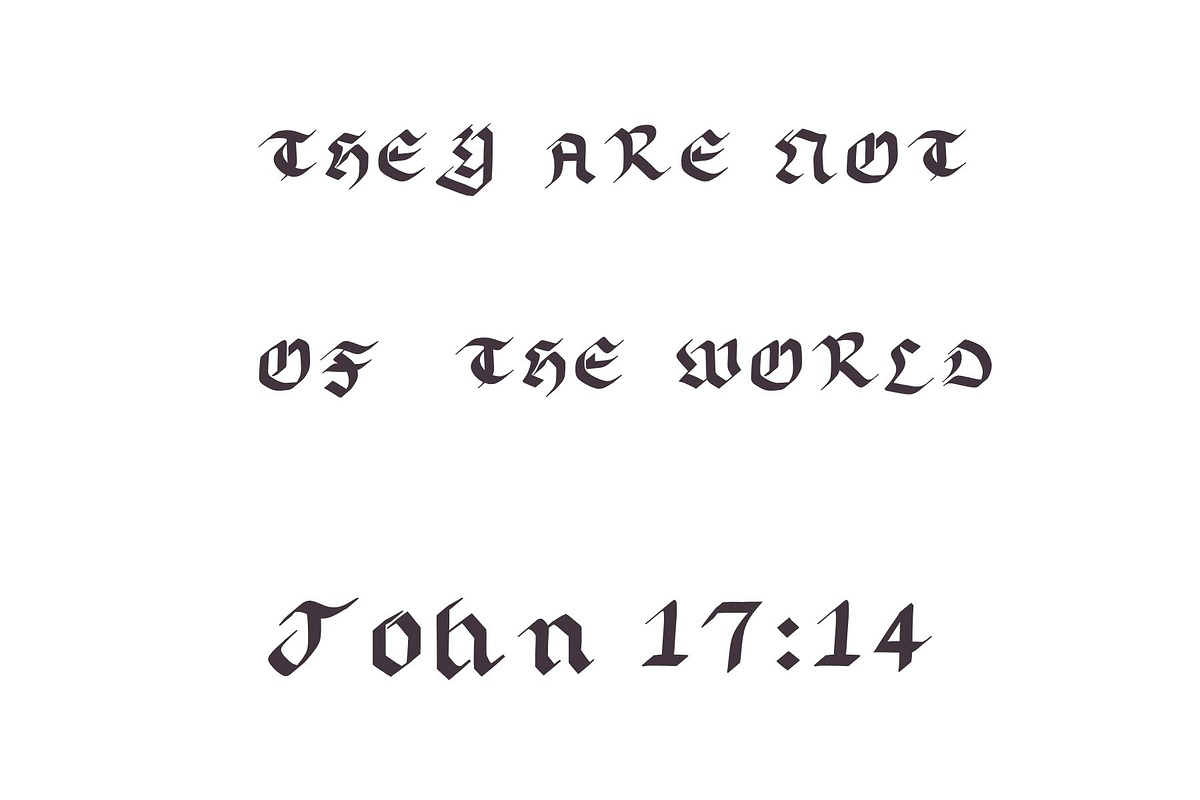 THEY ARE NOT
OF THE WORLD
John 17:14